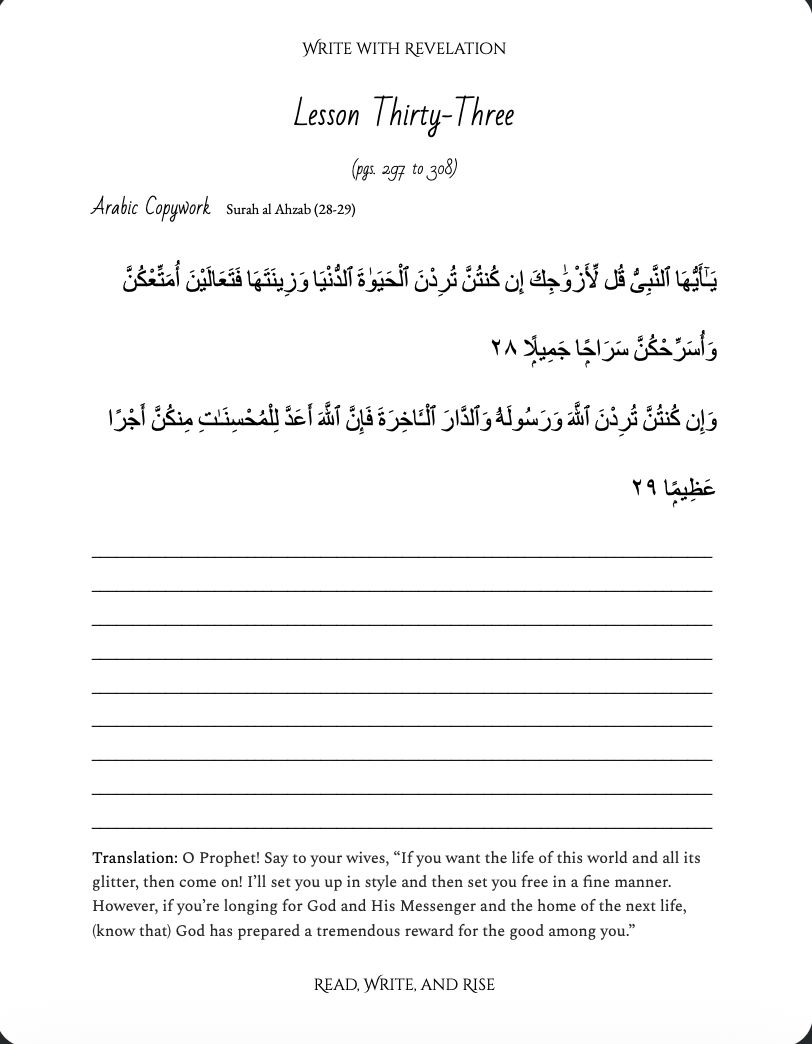 WRITE WITH REVELATION
Lesson Thirty-Three
(pgs. 297 to 308)
Arabic Copywork Surah al Ahzab (28-29)
يَـٰٓأَيُّهَا ٱلنَّبِىُّ قُل لِّأَزْوَٰجِكَ إِن كُنتُنَّ تُرِدْنَ ٱلْحَيَوٰةَ ٱلدُّنْيَا وَزِينَتَهَا فَتَعَالَيْنَ أُمَتِّعْكُنَّ
وَأُسَرِّحْكُنَّ سَرَاحًۭا جَمِيلًۭا ٢٨
وَإِن كُنتُنَّ تُرِدْنَ ٱللَّهَ وَرَسُولَهُۥ وَٱلدَّارَ ٱلْـَٔاخِرَةَ فَإِنَّ ٱللَّهَ أَعَدَّ لِلْمُحْسِنَـٰتِ مِنكُنَّ أَجْرًا
عَظِيمًۭا ٢٩
Translation: O Prophet! Say to your wives, “If you want the life of this world and all its
glitter, then come on! I’ll set you up in style and then set you free in a fine manner.
However, if you’re longing for God and His Messenger and the home of the next life,
(know that) God has prepared a tremendous reward for the good among you.”
READ, WRITE, AND RISE